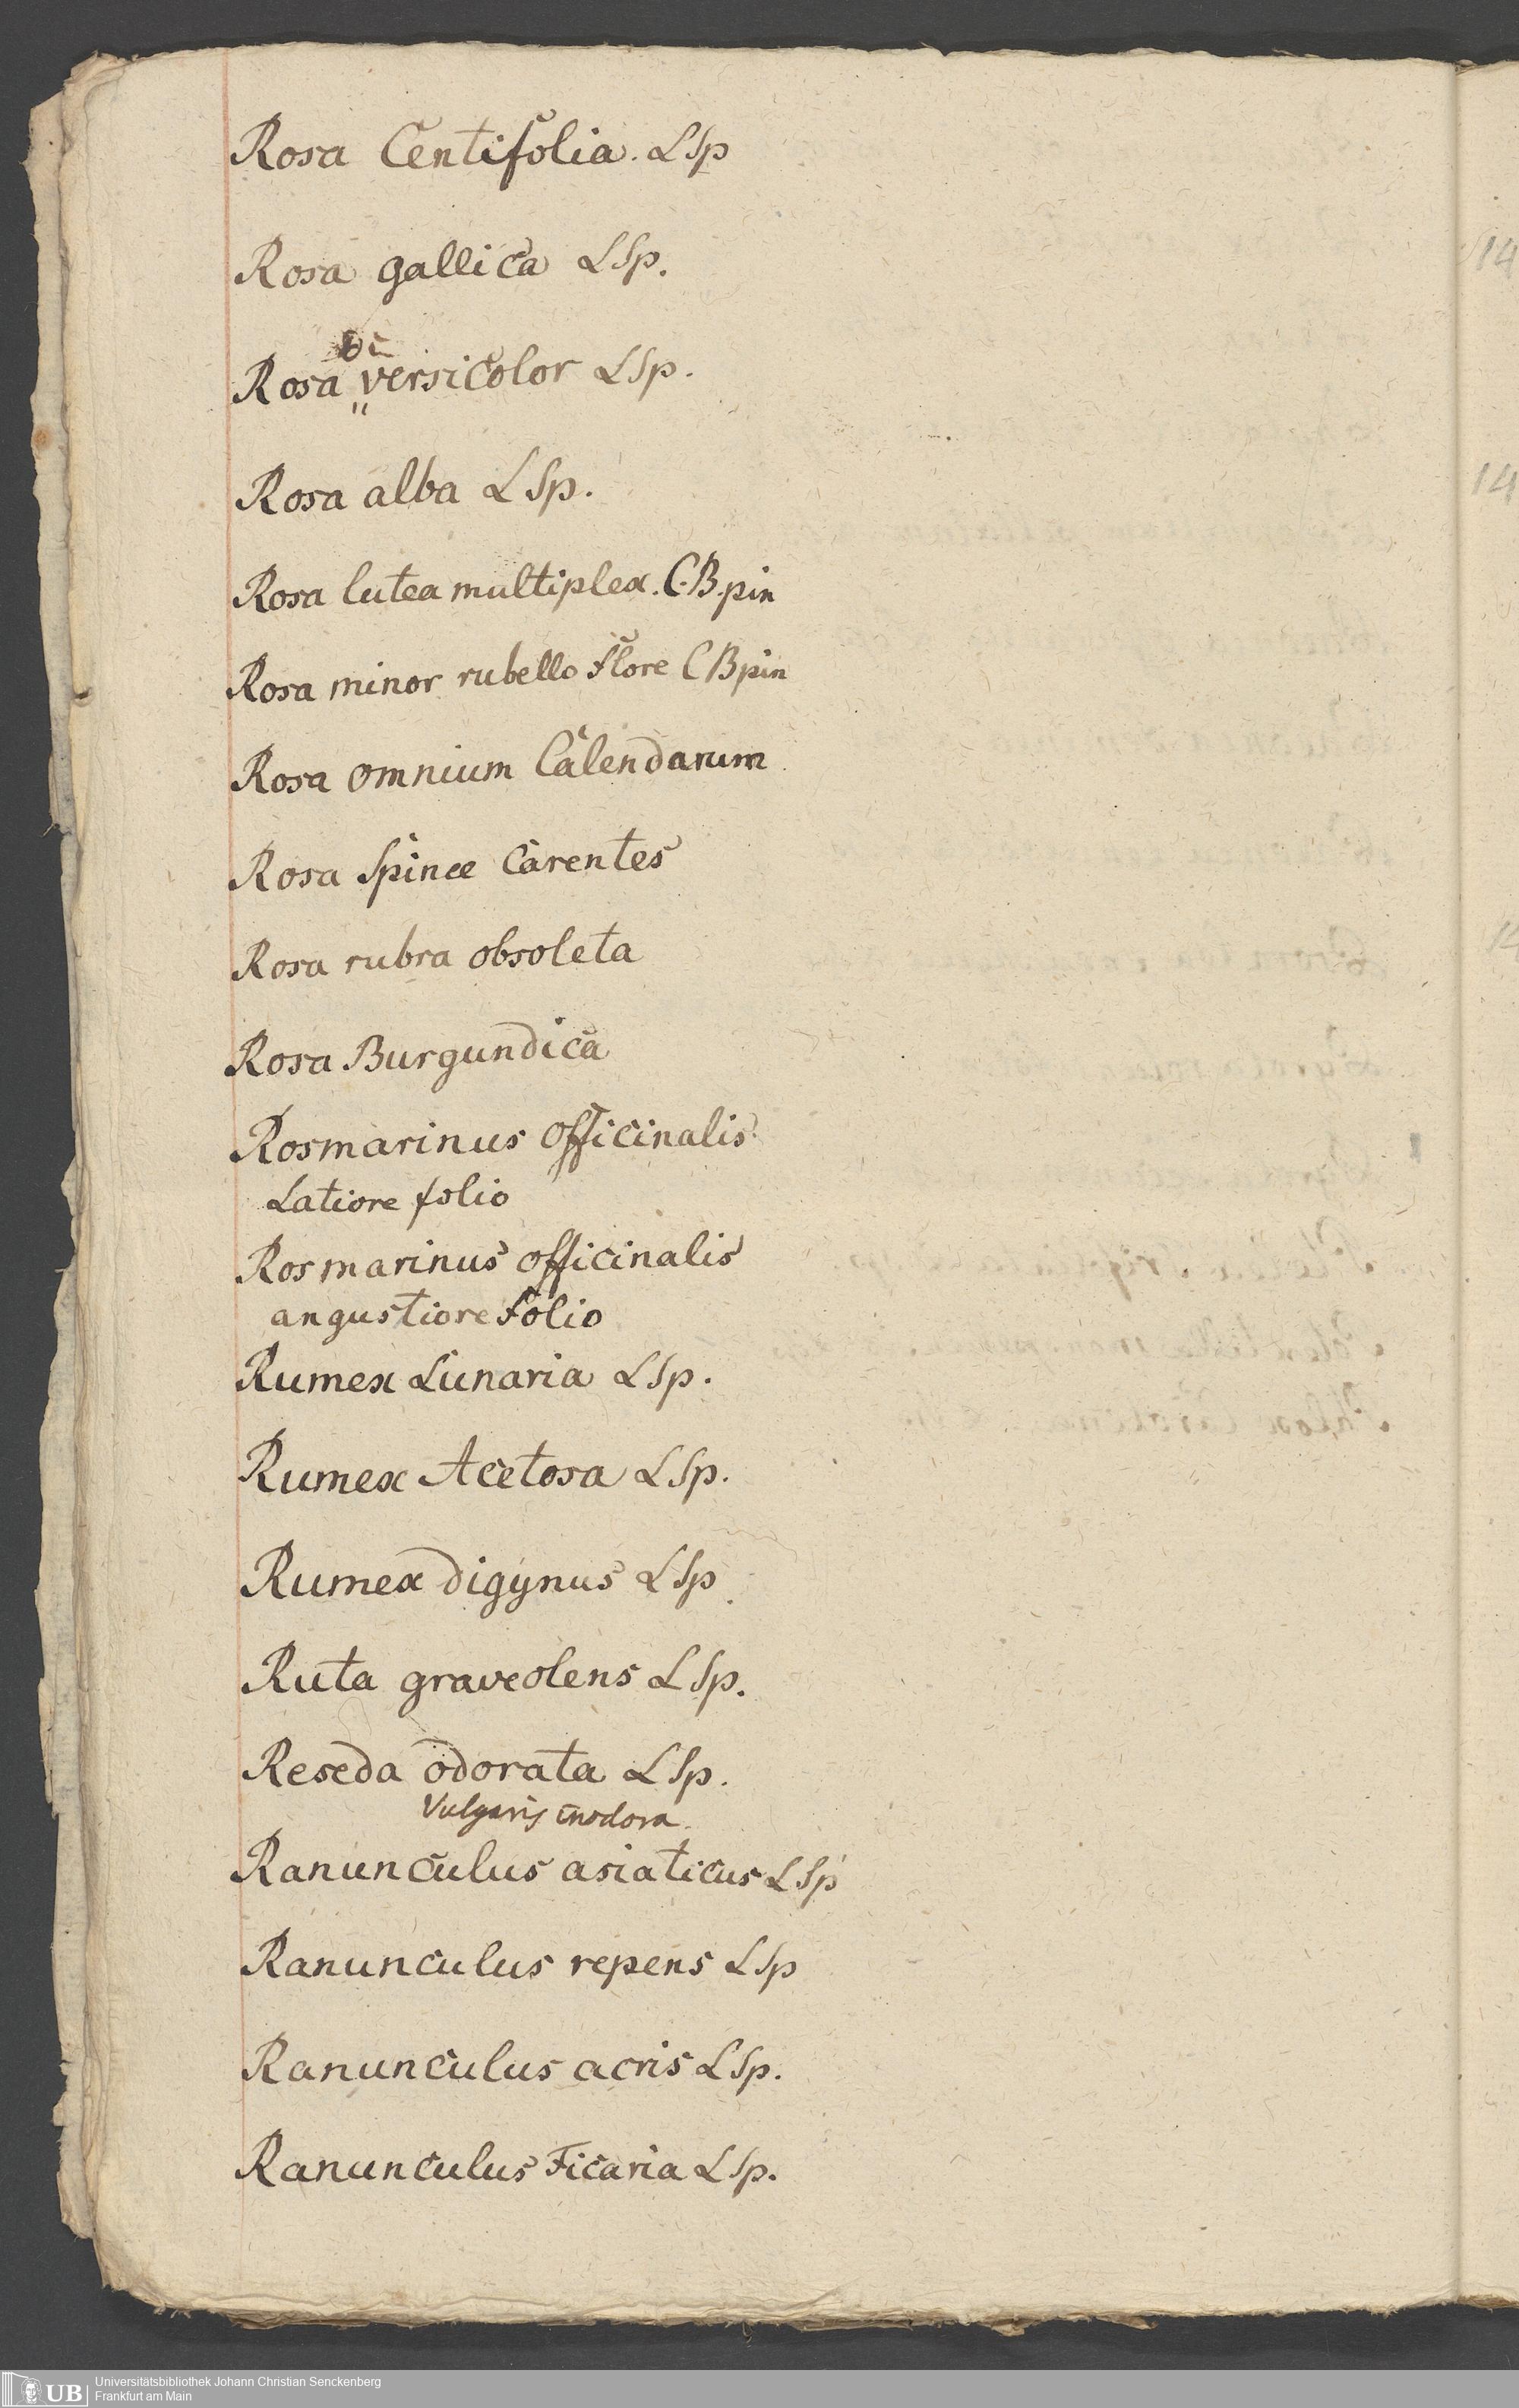 Rosa Centifolia. LSp
Rosa gallica LSp.
bi
Rosa versicolor LSp.
Rosa alba LSp.
Rosa lutea multiplex. C.B.pin
Rosa minor rubello Flore CBpin
Rosa omnium Calendarum
Rosa Spinae Carentes
Rosa rubra obsoleta
Rosa Burgundica
Rosmarinus officinalis
Latiore folio
Rosmarinus officinalis
angustiore Folio
Rumex Lunaria LSp.
Rumex Acetosa LSp.
Rumex digynus LSp.
Ruta graveolens LSp.
Reseda odorata LSp.
Vulgaris inodora.
Ranunculus asiaticus LSp
Ranunculus repens LSp
Ranunculus acris LSp.
Ranunculus Ficaria LSp.
14
14
14
UB
Universitätsbibliothek Johann Christian Senckenberg
Frankfurt am Main